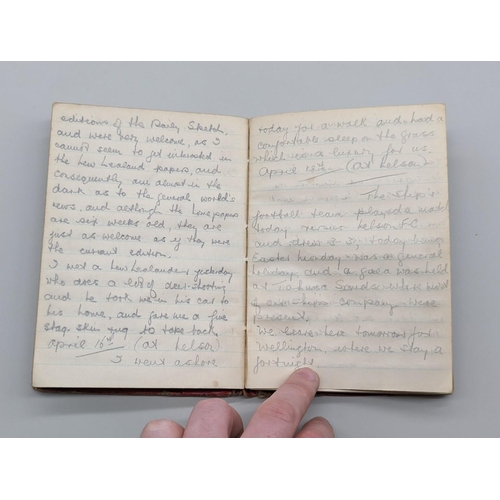 editions of the Daily Sketch,
and were very welcome, as I
cannot seem to get interested in
the New Zealand papers, and
consequently am almost in the
dark as to the general world's
news, and although the home papers
are six weeks old, they are
just as welcome as if they were
the current edition.
I met a new Zealander yesterday
who does a lot of deer-shooting
and he took me in his car to
his home, and gave me a fine
stag skin rug to take back.
April 16th (at Nelson)
I went ashore
today for a walk and had a
comfortable sleep on the grass
which is a luxury for us.
April 18th (at Nelson)
The ship's
football team played a match
today versus Nelson F.C
and drew 3-3; today being
Easter Monday was a general
holiday, and a gala was held
at Tahuna Sands where most
of ship's company were
present.
We leave here tomorrow for
Wellington, where we stay a
fortnight